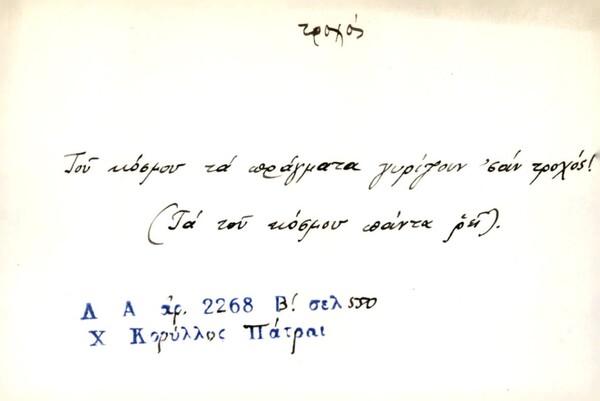 τροχός
Τοῦ κόσμου τά πράγματα γυρίζουν 'σάν τροχός!
(Τά τοῦ κόσμου πάντα ῥεῖ).
Λ Α ἀρ. 2268 Β! σελ 550
Χ Κορύλλος Πάτραι